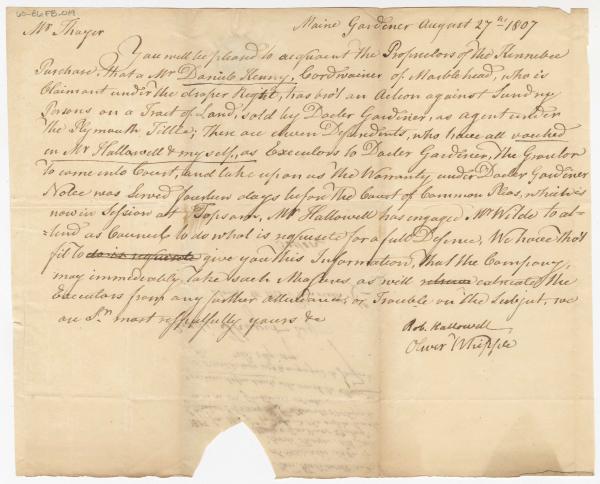 60-86FB.019
Maine Gardiner August 27th 1807
Mr Thayer
You will be pleased to acquaint the Proprietors of the Kennebec
Purchase, that a Mr Daniel Kenny, Cordwainer of Marblehead, who is
Claimant under the draper Right, has bro't an Action against Sundry
Persons on a Tract of Land, sold by Docter Gardiner, as agent under
the Plymouth Tittle; There are eleven Defendents, who have all vouched
in Mr Hallowell & myself, as Executors to Docter Gardiner, the Grantor
to come into Court, and take upon us the Warranty under Docter Gardiner
Notice was Served fourteen days before the Court of Common Pleas, which is
now in Session at Topsom, Mr Hallowell has engaged Mr Wilde to at-
-tend as Council to do what is requisete for a full Defence, We have tho't
fit to do is requisete give you this Information, that the Company,
may immediately take such Measures, as will extricate the
Executors from any further attendance, or Trouble on the Subject, we
are Sr. most respectfully yours &c
Rob. Hallowell
Oliver Whipple